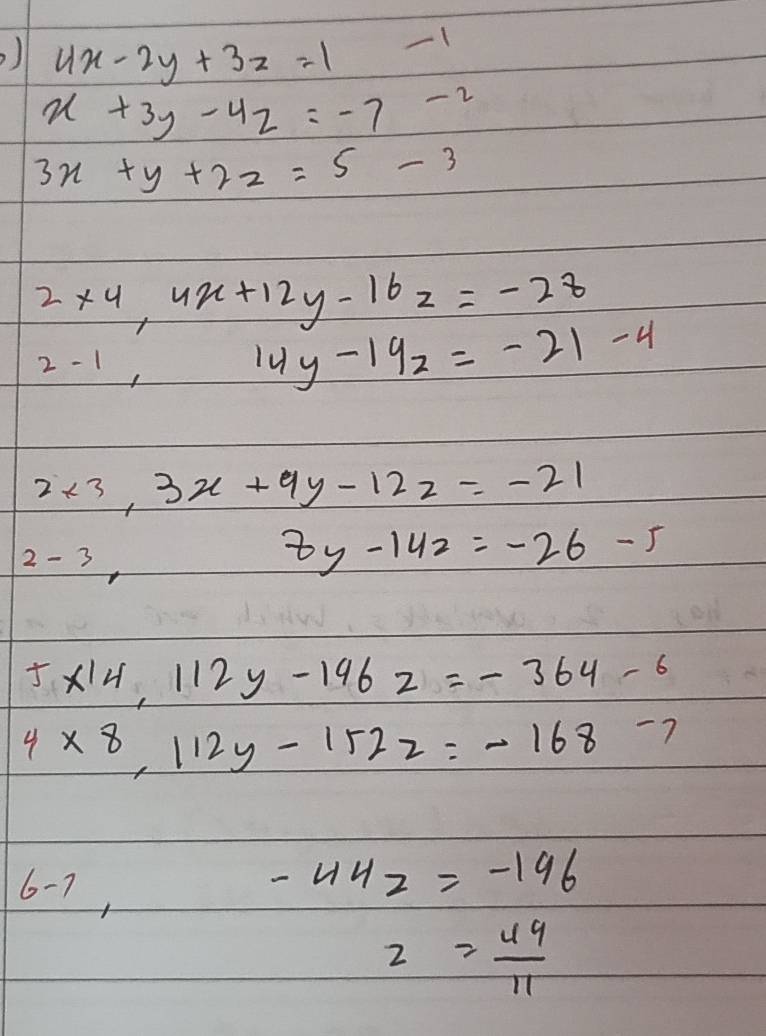 b) 4x - 2y + 3z = 1 - 1
x + 3y - 4z = -7 - 2
3x + y + 2z = 5 - 3
2 × 4, 4x + 12y - 16z = -28
2 - 1, 14y - 19z = -21 - 4
2 × 3, 3x + 9y - 12z = -21
2 - 3, 8y - 14z = -26 - 5
5 × 14, 112y - 196z = - 364 - 6
4 × 8, 112y - 152z = - 168 - 7
6 - 7, - 44z = -196
z = 49/11